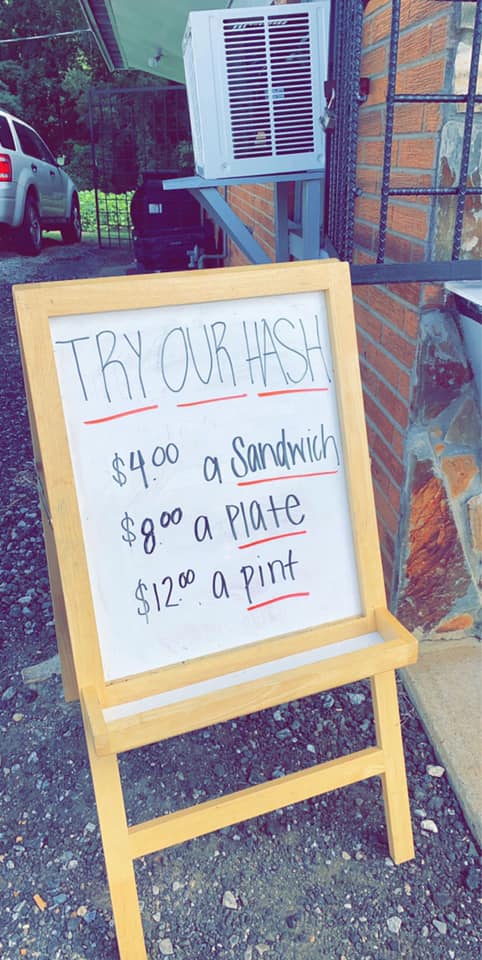 TRY OUR HASH
$4.00 a Sandwich
$8.00 a plate
$12.00 a pint